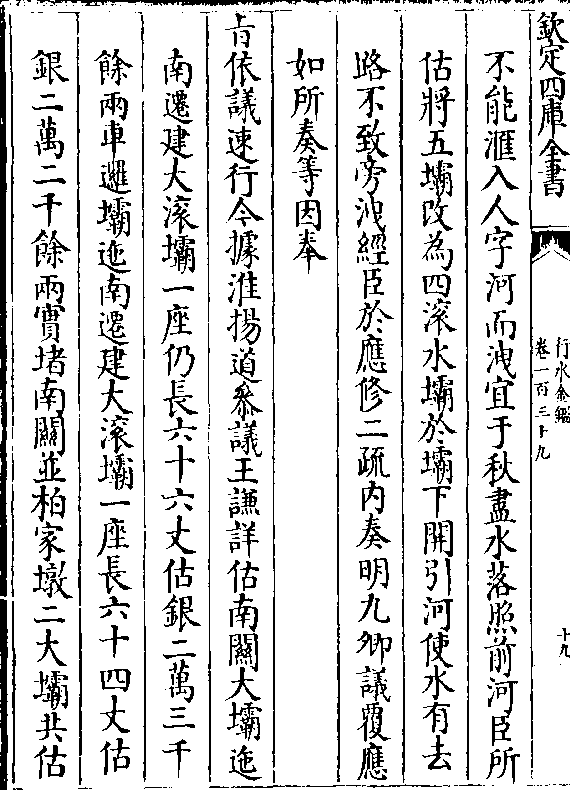 欽定四庫全書
行水金鑑
卷一百三十九
十九
不能滙入人字河而洩宜于秋盡水落照前河臣所
估將五壩改為四滚水壩於壩下開引河使水有去
路不致旁洩經臣於應修二疏内奏明九卿議覆應
如所奏等因奉
㫖依議速行今據淮揚道叅議王謙詳估南關大壩迤
南遷建大滚壩一座仍長六十六丈估銀二萬三千
餘兩車邏壩迤南遷建大滚壩一座長六十四丈估
銀二萬二千餘兩實堵南關並柏家墩二大壩共估